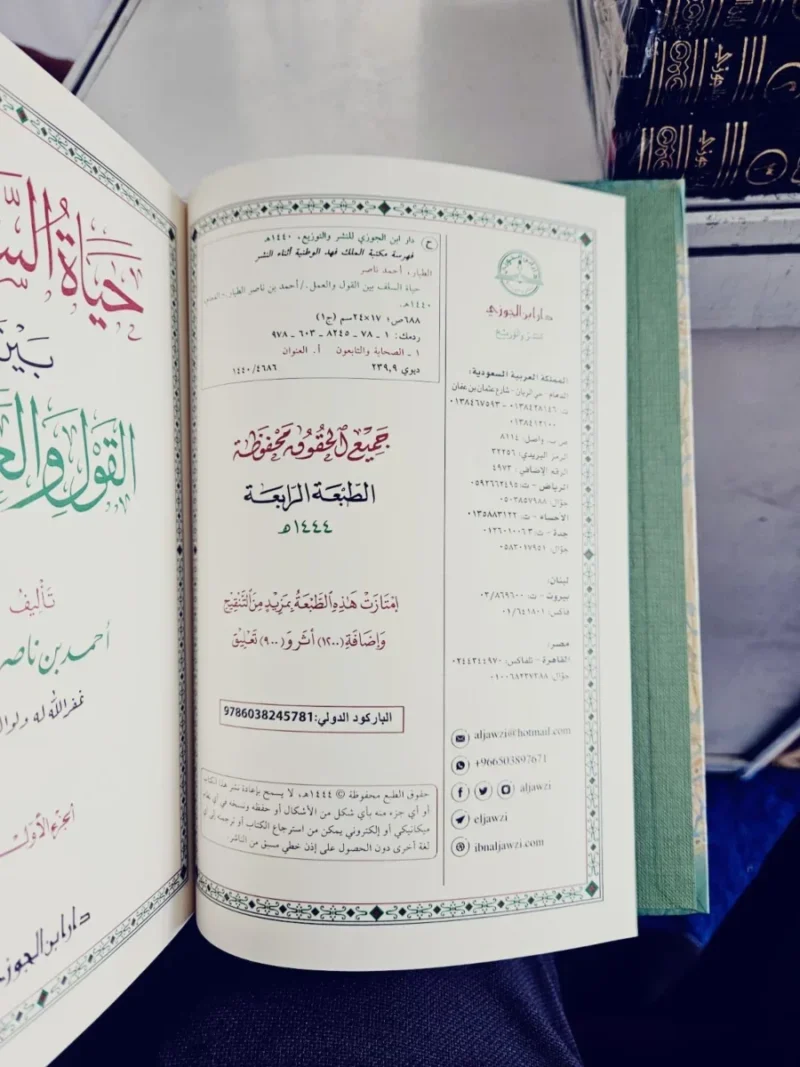 حَيَاةُ
بَيْنَ
القَوْلِ وَالْعَ
تَأْلِيفُ
أحمد بن ناصر
غفر الله له ولوال
الجزء الأول
دار ابن الجوزي
ح
دار ابن الجوزي للنشر والتوزيع، ١٤٤٠هـ
فهرسة مكتبة الملك فهد الوطنية أثناء النشر
الطيار، أحمد ناصر
حياة السلف بين القول والعمل./ أحمد بن ناصر الطيار.-
١٤٤٠هـ.
٦٨٨ص؛ ١٧×٢٤سم (ج١)
ردمك: ١ - ٧٨ - ٨٢٤٥ - ٦٠٣ - ٩٧٨
١ ـ الصحابة والتابعون أ. العنوان
ديوي ٢٣٩,٩ ١٤٤٠/٤٦٨٦
جَمِيعُ الحُقُوقِ مَحْفُوظَة
الطَّبْعَة الرَّابِعَة
١٤٤٤هـ
امْتَازَتْ هَذِهِ الطَّبْعَةُ بِمَزِيدٍ مِنَ التَّنْقِيحِ
وَإِضَافَةِ (١٢٠٠) أَثَرٍ وَ(٩٠٠) تَعْلِيقٍ
الباركود الدولي: 9786038245781
حقوق الطبع محفوظة © ١٤٤٤هـ، لا يسمح بإعادة نشر هذا الكتاب
أو أي جزء منه بأي شكل من الأشكال أو حفظه ونسخه في أي
ميكانيكي أو إلكتروني يمكن من استرجاع الكتاب أو ترجمته إلى أي
لغة أخرى دون الحصول على إذن خطي مسبق من الناشر.
دار ابن الجوزي
للنشر والتوزيع
المملكة العربية السعودية:
الدمام - حي الريان - شارع عثمان بن عفان
ت: ٠١٣٨٤٢٨١٤٦ - ٠١٣٨٤٦٧٥٩٣
٠١٣٨٤١٢١٠٠
ص. ب. واصل: ٨١١٤
الرمز البريدي: ٣٢٢٥٦
الرقم الإضافي: ٤٩٧٣
الرياض - ت: ٠٥٩٢٦٦٢٤٩٥
جوّال: ٠٥٠٣٨٥٧٩٨٨
الأحساء - ت: ٠١٣٥٨٨٣١٢٢
جدة - ت: ٠١٢٦٠١٠٠٦٣
جوّال: ٠٥٨٣٠١٧٩٥١
لبنان:
بيروت - ت: ٠٣/٨٦٩٦٠٠
فاكس: ٠١/٦٤١٨٠١
مصر:
القاهرة - تلفاكس: ٠٢٤٤٣٤٤٩٧٠
جوّال: ٠١٠٠٦٨٢٣٧٣٨٨
aljawzi@hotmail.com
+966503897671
aljawzi
eljawzi
ibnaljawzi.com